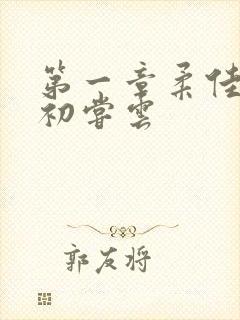 第一章柔佳
初尝云
郭友将